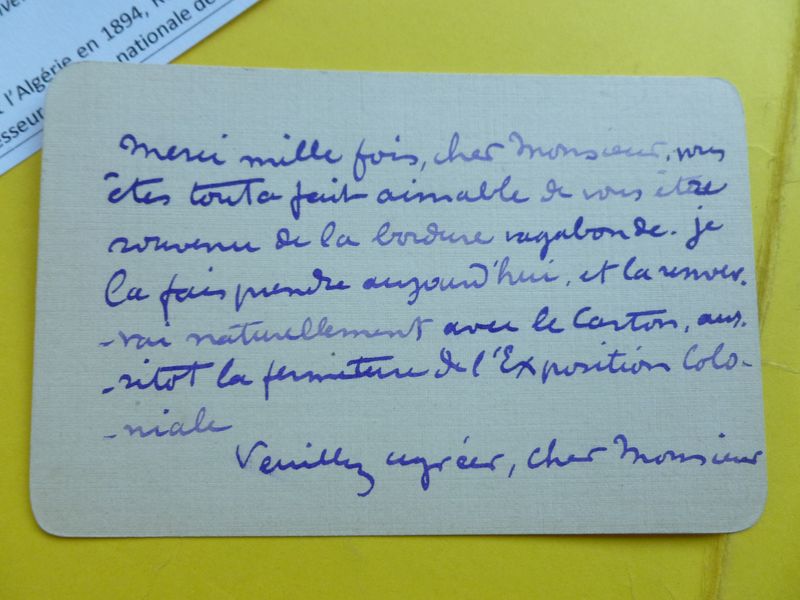 l'Algérie en 1894,
esseur
nationale de
Merci mille fois, cher Monsieur, vous
êtes tout a fait aimable de vous être
souvenu de la bordure vagabonde. je
la fais prendre aujourd'hui, et la renver-
-rai naturellement avec le Carton, aus-
-sitot la fermeture de l'Exposition Colo-
-niale
Veuillez agréer, cher Monsieur